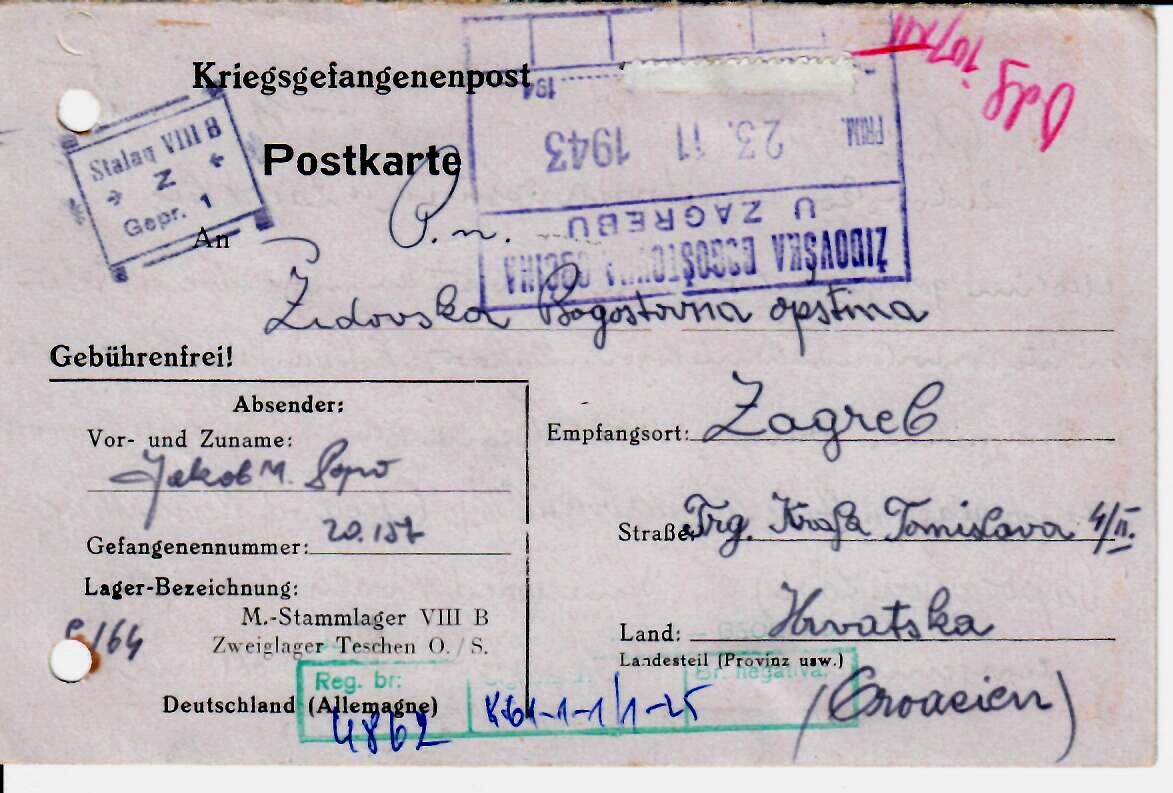 Kriegsgefangenenpost
Postkarte
Stalag VIII B
Z
Gepr. 1
ŽIDOVSKA BOGOŠTOVNA OPĆINA
U ZAGREBU
PRIM. 23. 11 1943
194
Odg.
An
P.n.
Židovska Bogostovna opština
Gebührenfrei!
Absender:
Vor- und Zuname:
Jakob M. Papo
Gefangenennummer: 20.157
Lager-Bezeichnung:
M.-Stammlager VIII B
Zweiglager Teschen O./S.
/64
Deutschland (Allemagne)
Empfangsort: Zagreb
Straße: Trg. Kralja Tomislava 4/II.
Land: Hrvatska
Landesteil (Provinz usw.)
(Croacien)
Reg. br:
4862
Br. negativa:
K61-1-1/1-25